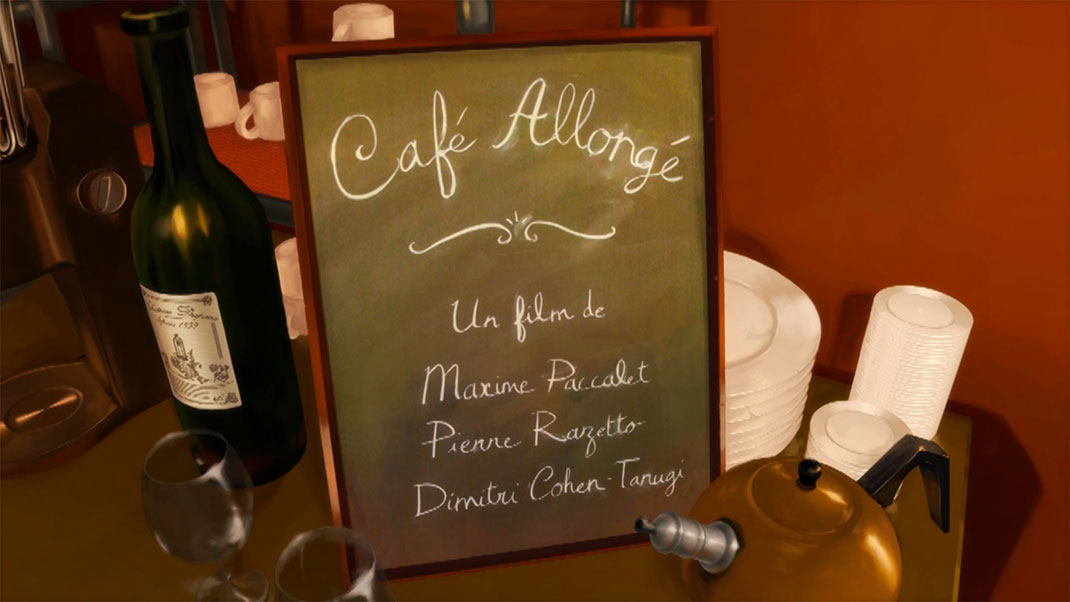 Café Allongé
Un film de
Maxime Paccalet
Pierre Razetto
Dimitri Cohen-Tanugi